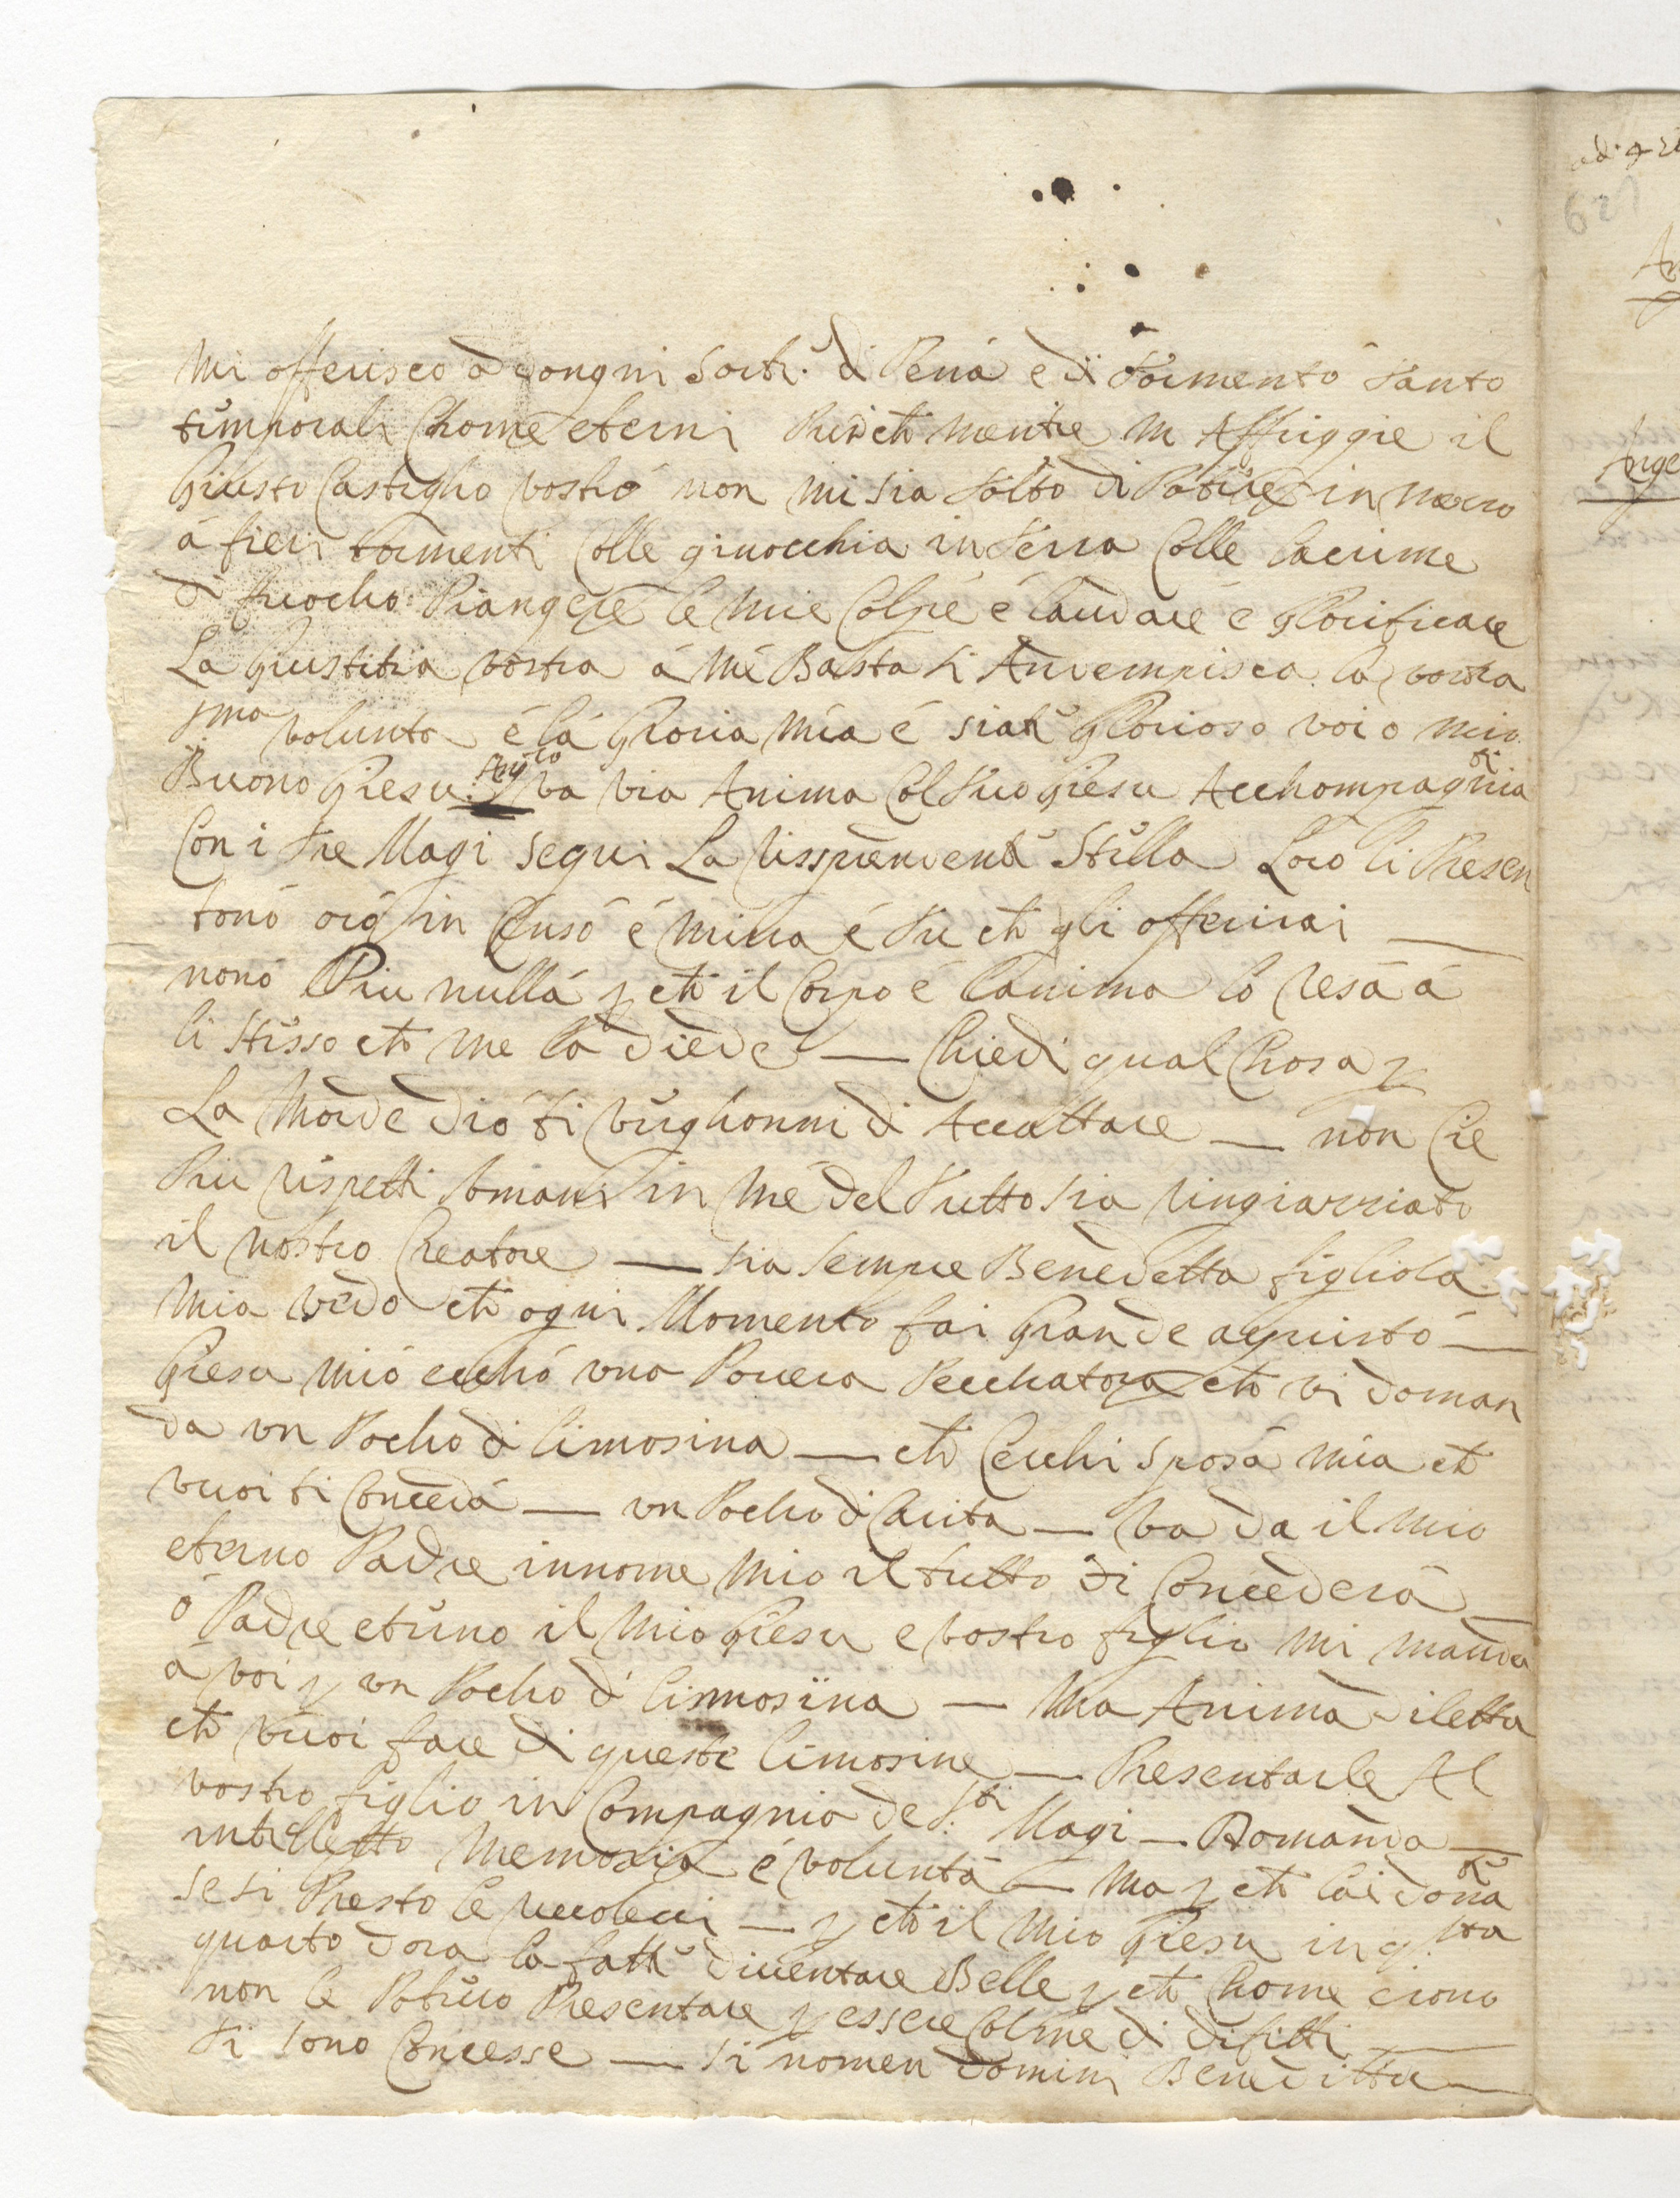 adi 9
621
Mi offerisco ad ongni Sorte di Pena e di tormento tanto
temporali Chome eterni Purche mentre m Affriggie il
Giusto Castigho vostro non mi sia tolto di Potere in mezo
á fieri tormenti Colle ginocchia in terra Colle lacrime
di fuocho Piangere le mie Colpe é laudare é glorificare
La Giustitia vostra á Mé Basta s Anvempisca la vostra
sma volunta é la Groria mia é siate glorioso voi o mio
Buono Giesu: va via Anima Col tuo Giesu Acchompagnia
Con i tre Magi segui La rissprendente Stella Loro li Presen
tonó oró in Censó é mirra é tu che gli offerirai —
nonó Piu nullá p che il Corpo é lanima ló resá á
li stesso che me la diede — Chiedi qual Chosa p
La Mor de dió ti verghonni di Accattare — non Cie
Piu rispetti Umani in me del tutto sia ringrazziato
il nostro Creatore — sia sempre Benedetta figliola
Mia vedo che ogni Momento fai grande aquistó —
Giesu mió ecchó una Povera Pecchatora che vi doman
da un Pocho di limosina — che Cecchi sposá mia che
vuoi ti Concedá — un Pocho di Carita — va da il mio
eterno Padre innome mio il tutto di Concederá —
ó Padre eterno il Mio Giesu e vostro figlio mi manda
á voi p un Pocho di limosina — Ma Anima diletta
che vuoi fare di queste limosine — Presentarle Al
vostro figlio in Compagnia de S.ti Magi — Domanda —
intelletto Memoria é voluntá — Ma p che lai
se si Presto le — p che il mio Giesu in q.sto
quarto dora la fatte diventare Belle p che Chome erono
non le Potevo Presentare p essere Colme di difetti —
ti sono Concesse — si nomen domini Beneditttu —
An
Ange